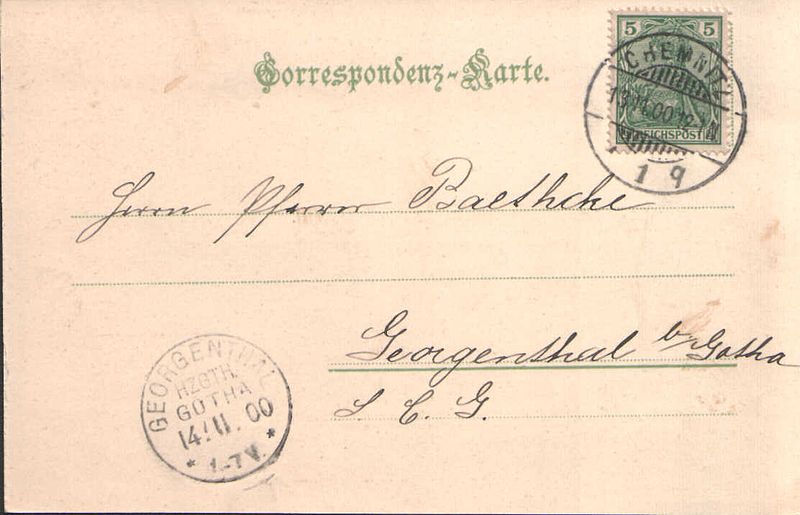 Correspondenz-Karte.
5 5
REICHSPOST
CHEMNITZ
1 9
Herrn Pfarrer Baethcke
Georgenthal b/Gotha
S. C. G.
GEORGENTHAL
HZGTH.
GOTHA
14/11.00
* 1-7V. *